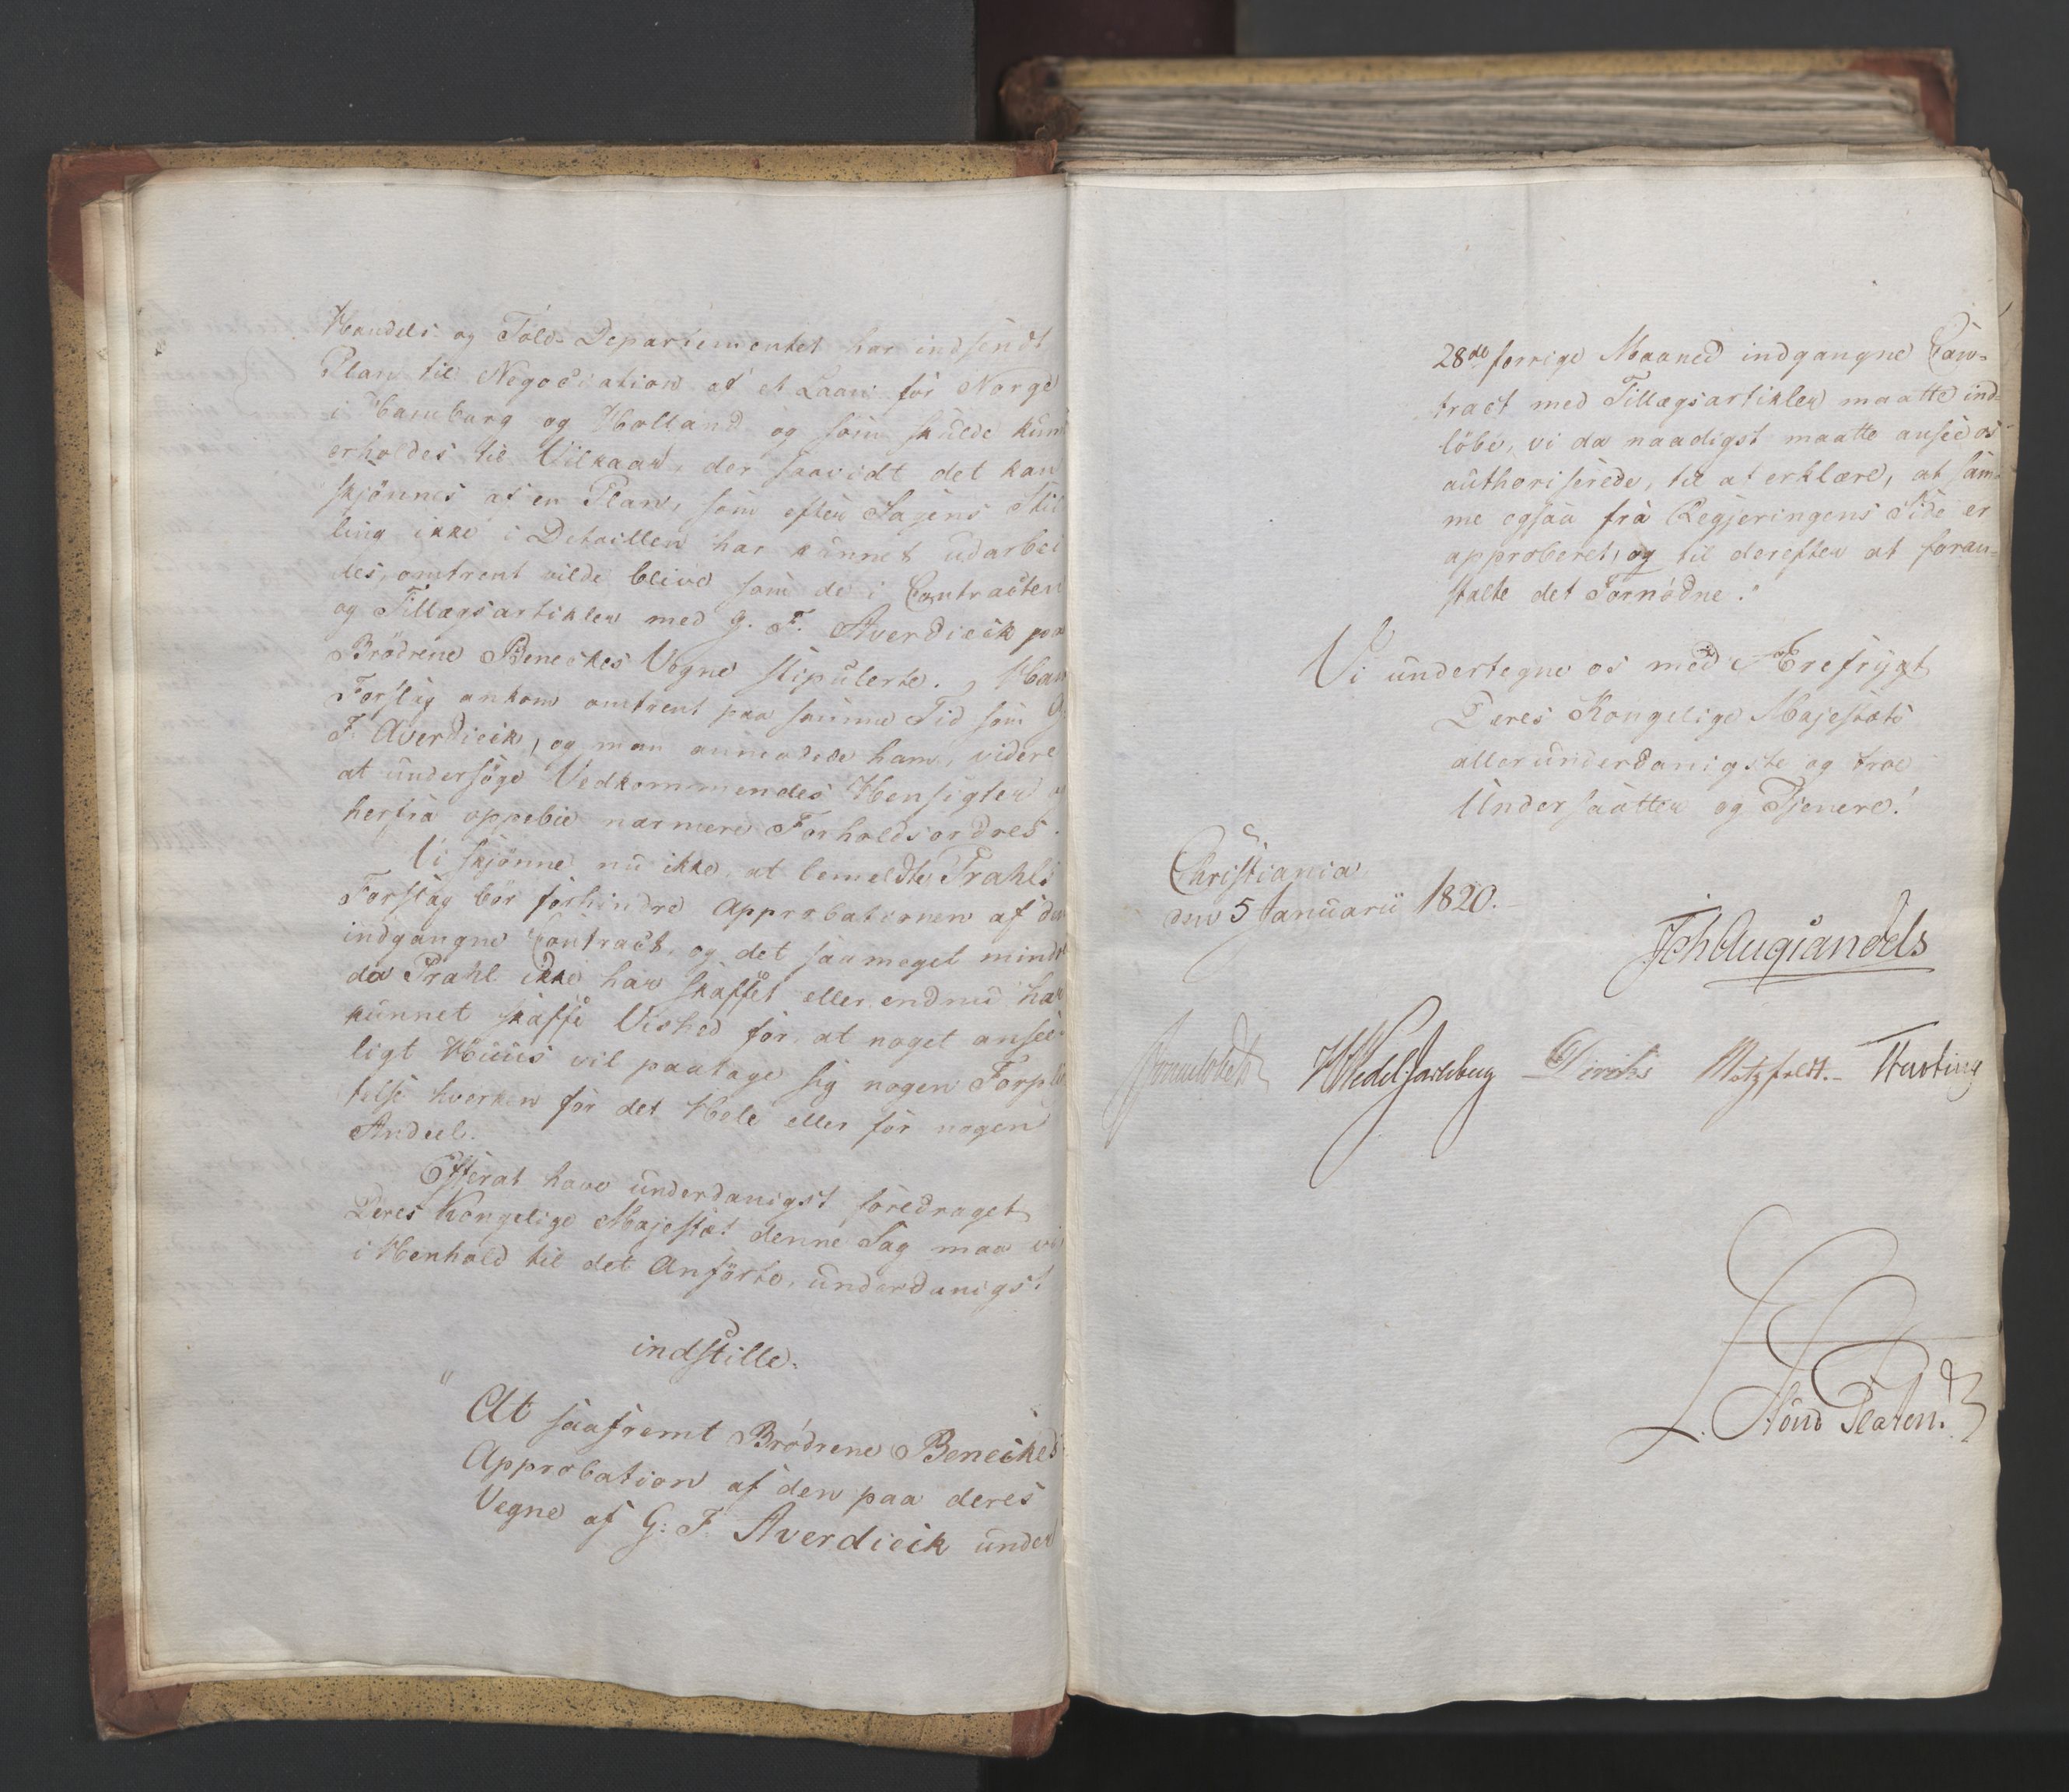 Handels- og Told-Departementet har indsendt
Plan til Negociation af et Laan for Norge
i Hamburg og Holland og som skulde kun
erholdes til Vilkaar, der saavidt det kan
skjönnes af en Plan, som efter Sagens Stil
ling ikke i Detaillen har kunnet udarbei
des, omtrent vilde blive som de i Contracten
og Tillægsartiklen med G. F. Averdieck paa
Brödrene Beneckes Vegne stipulerte. Hans
Forslag ankom omtrent paa samme Tid som G.
F. Averdieck, og man anmodede ham, videre
at undersöge Vedkommendes Hensigter og
herfra oppebie nærmere Forholdsordres.
Vi skjönne nu ikke, at bemeldte Prahls
Forslag bör forhindre Approbationen af den
indgangne Contract, og det saameget mindre
da Prahl ikke har skaffet eller endnu har
kunnet skaffe Vished for, at noget ansee-
ligt Huus vil paatage sig nogen Forplig
telse hverken for det Hele eller for nogen
Andeel.
Efterat have underdanigst foredraget
Deres Kongelige Majestæt denne Sag maa vi
i Henhold til det Anförte, underdanigst
indstille:
" At saafremt Brödrene Beneckes
Approbation af den paa deres
Vegne af G: F. Averdieck under
28de forrige Maaned indgangne Con-
tract med Tillægsartiklen maatte ind-
löbe, vi da naadigst maatte ansee os
authoriserede, til at erklære, at sam-
me ogsaa fra Regjeringens Side er
approberet, og til derefter at foran-
stalte det Fornödne."
Vi undertegne os med Ærefrygt
Deres Kongelige Majestæts
allerunderdanigste og troe
Undersaatter og Tjenere!
Christiania
den 5 Januarii 1820.
Joh Aug Sandels
Sommerhielm HWedel Jarlsberg Diriks Motzfeldt. Hasting
L. von Platen.